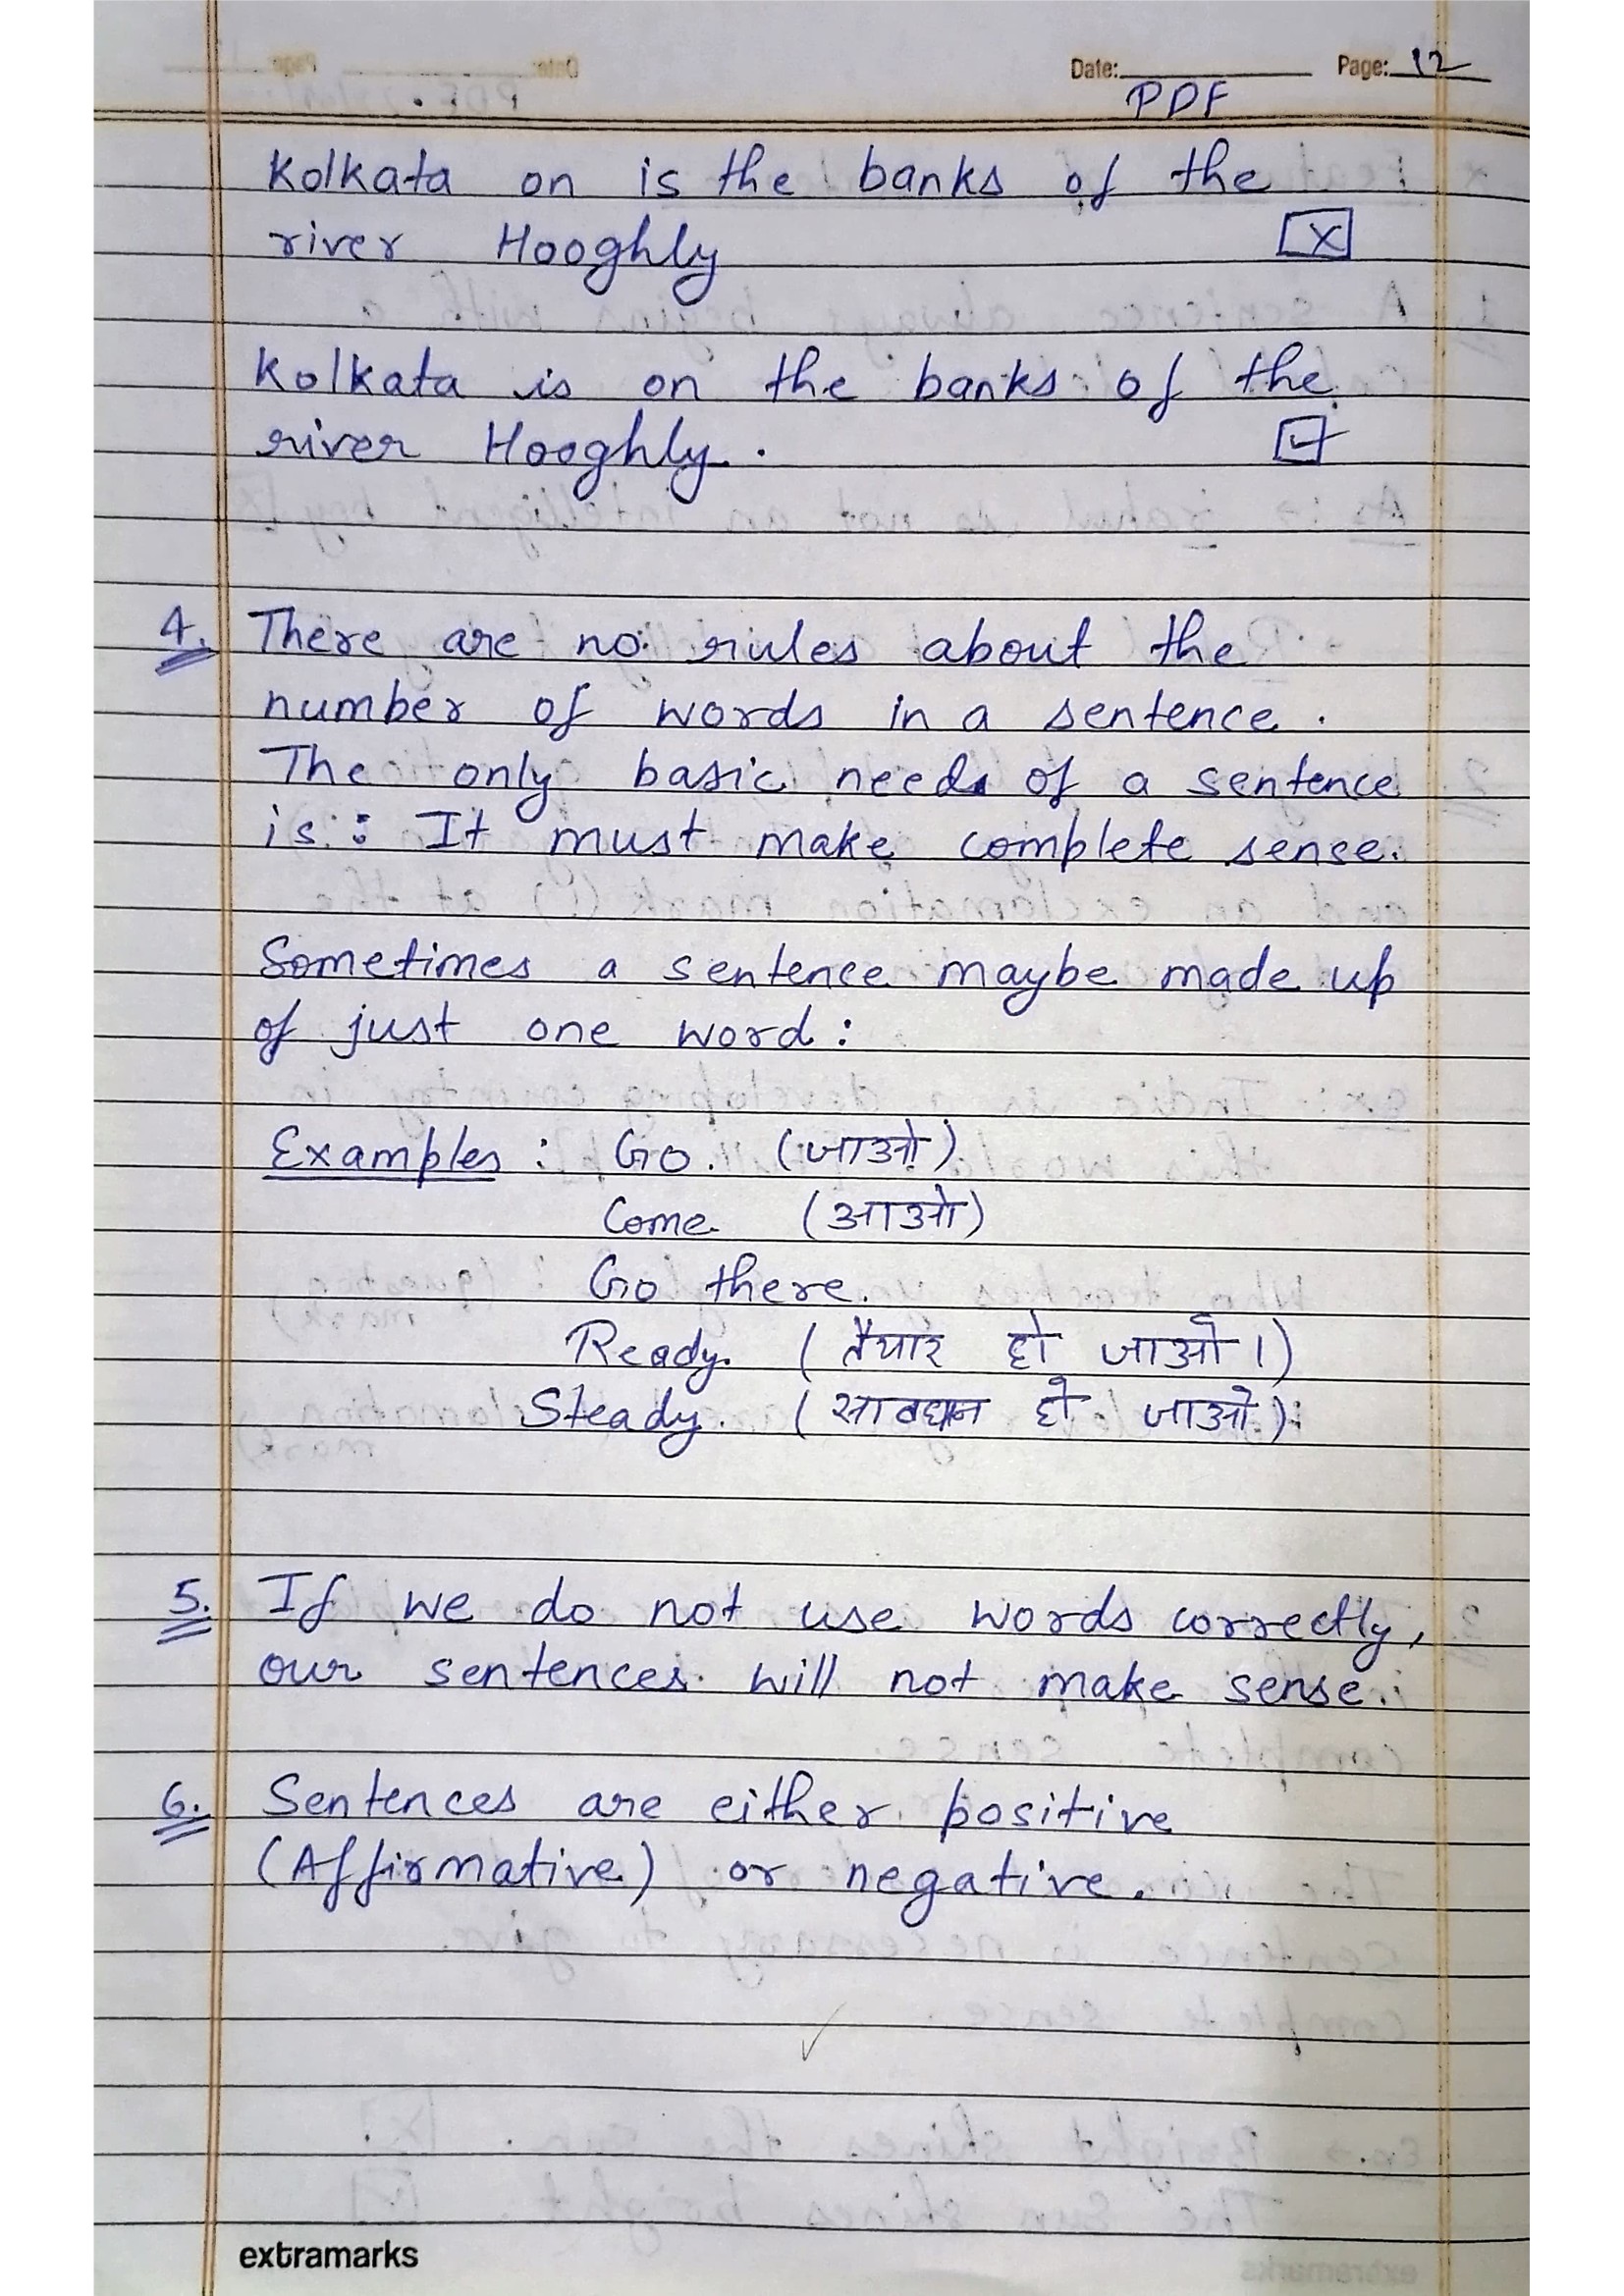 Date: Page: 12
PDF
Kolkata on is the banks of the
river Hooghly [x]
Kolkata is on the banks of the
river Hooghly. [✓]
4. There are no rules about the
number of words in a sentence.
The only basic needs of a sentence
is : It must make complete sense.
Sometimes a sentence maybe made up
of just one word :
Examples : Go. (जाओ)
Come (आओ)
Go there.
Ready. (तैयार हो जाओ।)
Steady. (सावधान हो जाओ)
5. If we do not use words correctly,
our sentences will not make sense.
6. Sentences are either positive
(Affirmative) or negative.
extramarks